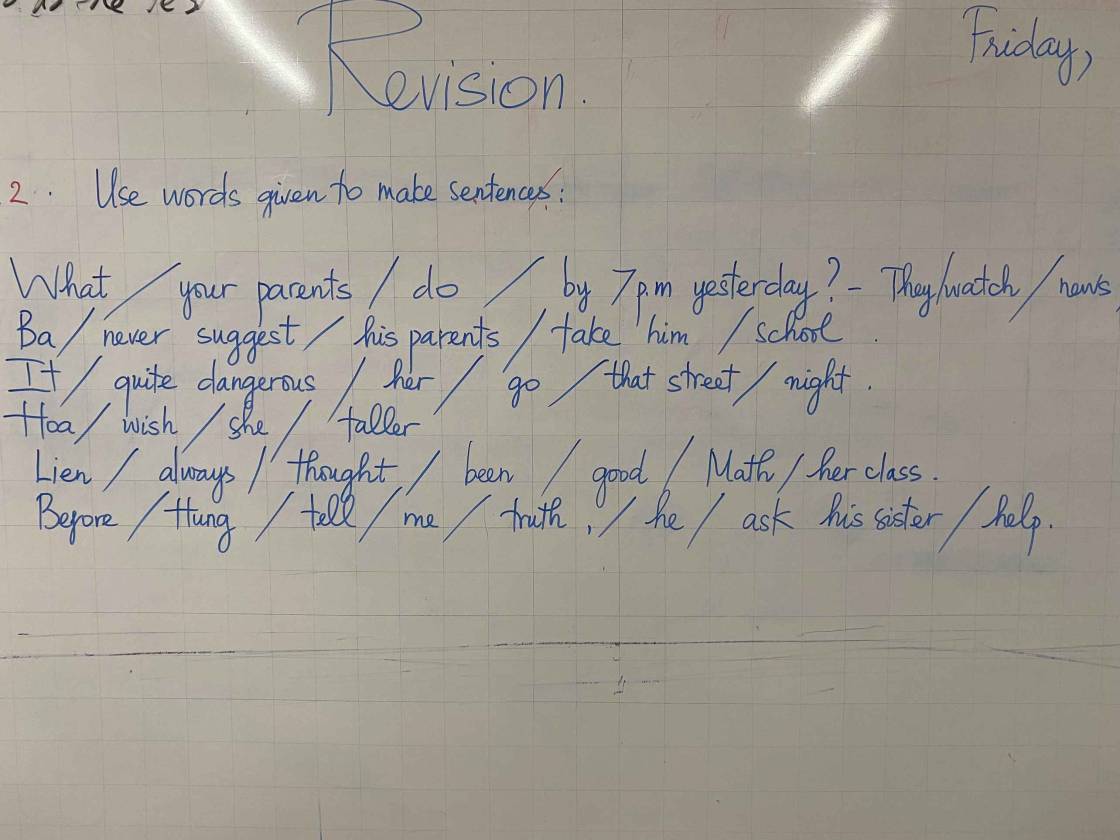 Revision.
Friday,
2. Use words given to make sentences:
What / your parents / do / by 7 p.m yesterday? - They/watch / news
Ba / never suggest / his parents / take him / school.
It / quite dangerous / her / go / that street / night.
Hoa / wish / she / taller
Lien / always / thought / been / good / Math / her class.
Before / Hung / tell / me / truth, / he / ask his sister / help.